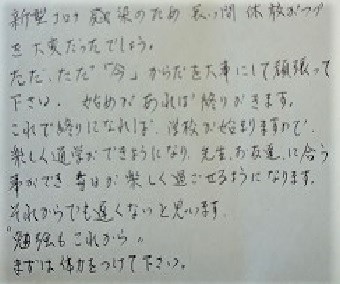 新型コロナ感染のため長い間休校がつづ
き大変だったでしょう。
ただ、ただ「今」からだを大事にして頑張って
下さい。始めがあれば終りがきます。
これで終りになれば、学校が始まりますので、
楽しく通学ができるようになり、先生、お友達、に会う
事ができ毎日が楽しく過ごせるようになります。
それからでも遅くないと思います。
"勉強もこれから。
まずは体力をつけて下さい。